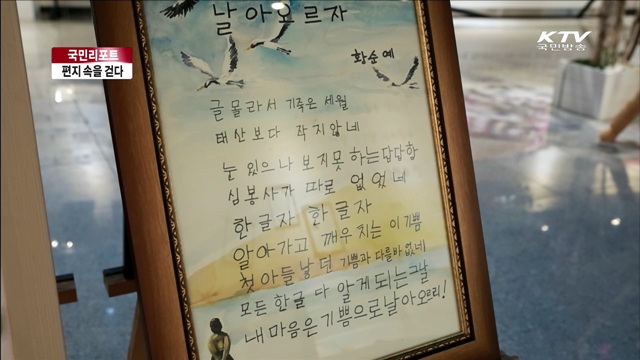 국민리포트
편지 속을 걷다
KTV
국민방송
날아오르자
황순예
글 몰라서 기죽은 세월
태산보다 작지않네
눈 있으나 보지못 하는답답함
심봉사가 따로 없었네
한글자 한글자
알아가고 깨우치는 이기쁨
첫아들낳던 기쁨과 다를바없네
모든 한글 다 알게되는그날
내마음은 기쁨으로날아오르리!